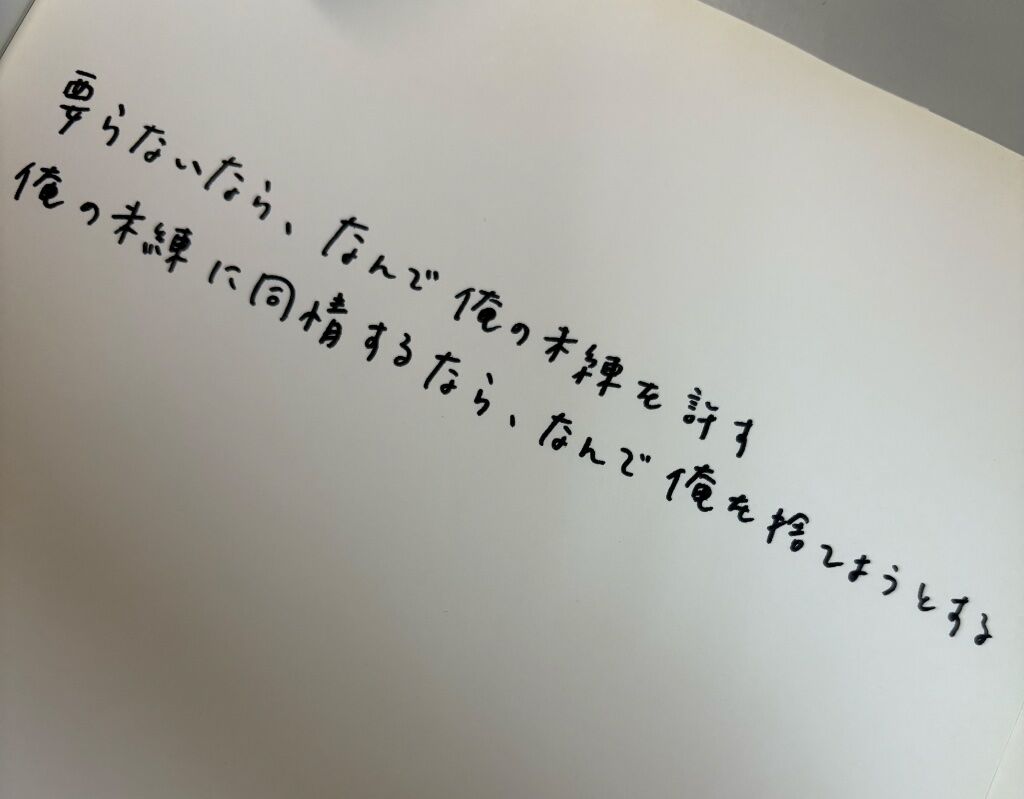 要らないなら、なんで俺の未練を許す
俺の未練に同情するなら、なんで俺を捨てようとする